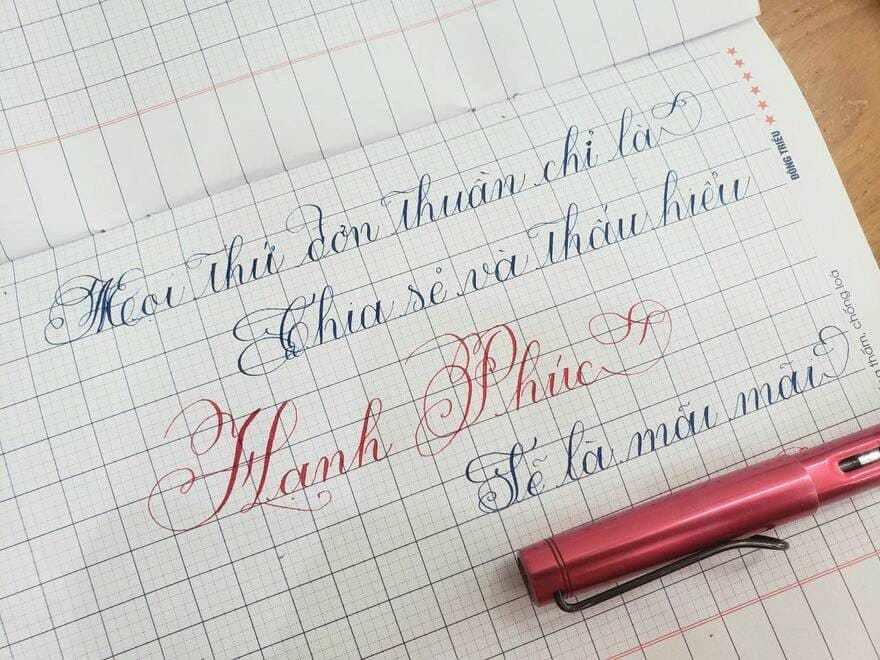 Mọi thứ đơn thuần chỉ là
Chia sẻ và thấu hiểu
Hạnh Phúc
Sẽ là mãi mãi
ĐÔNG TRIỀU
thấm, chống loá